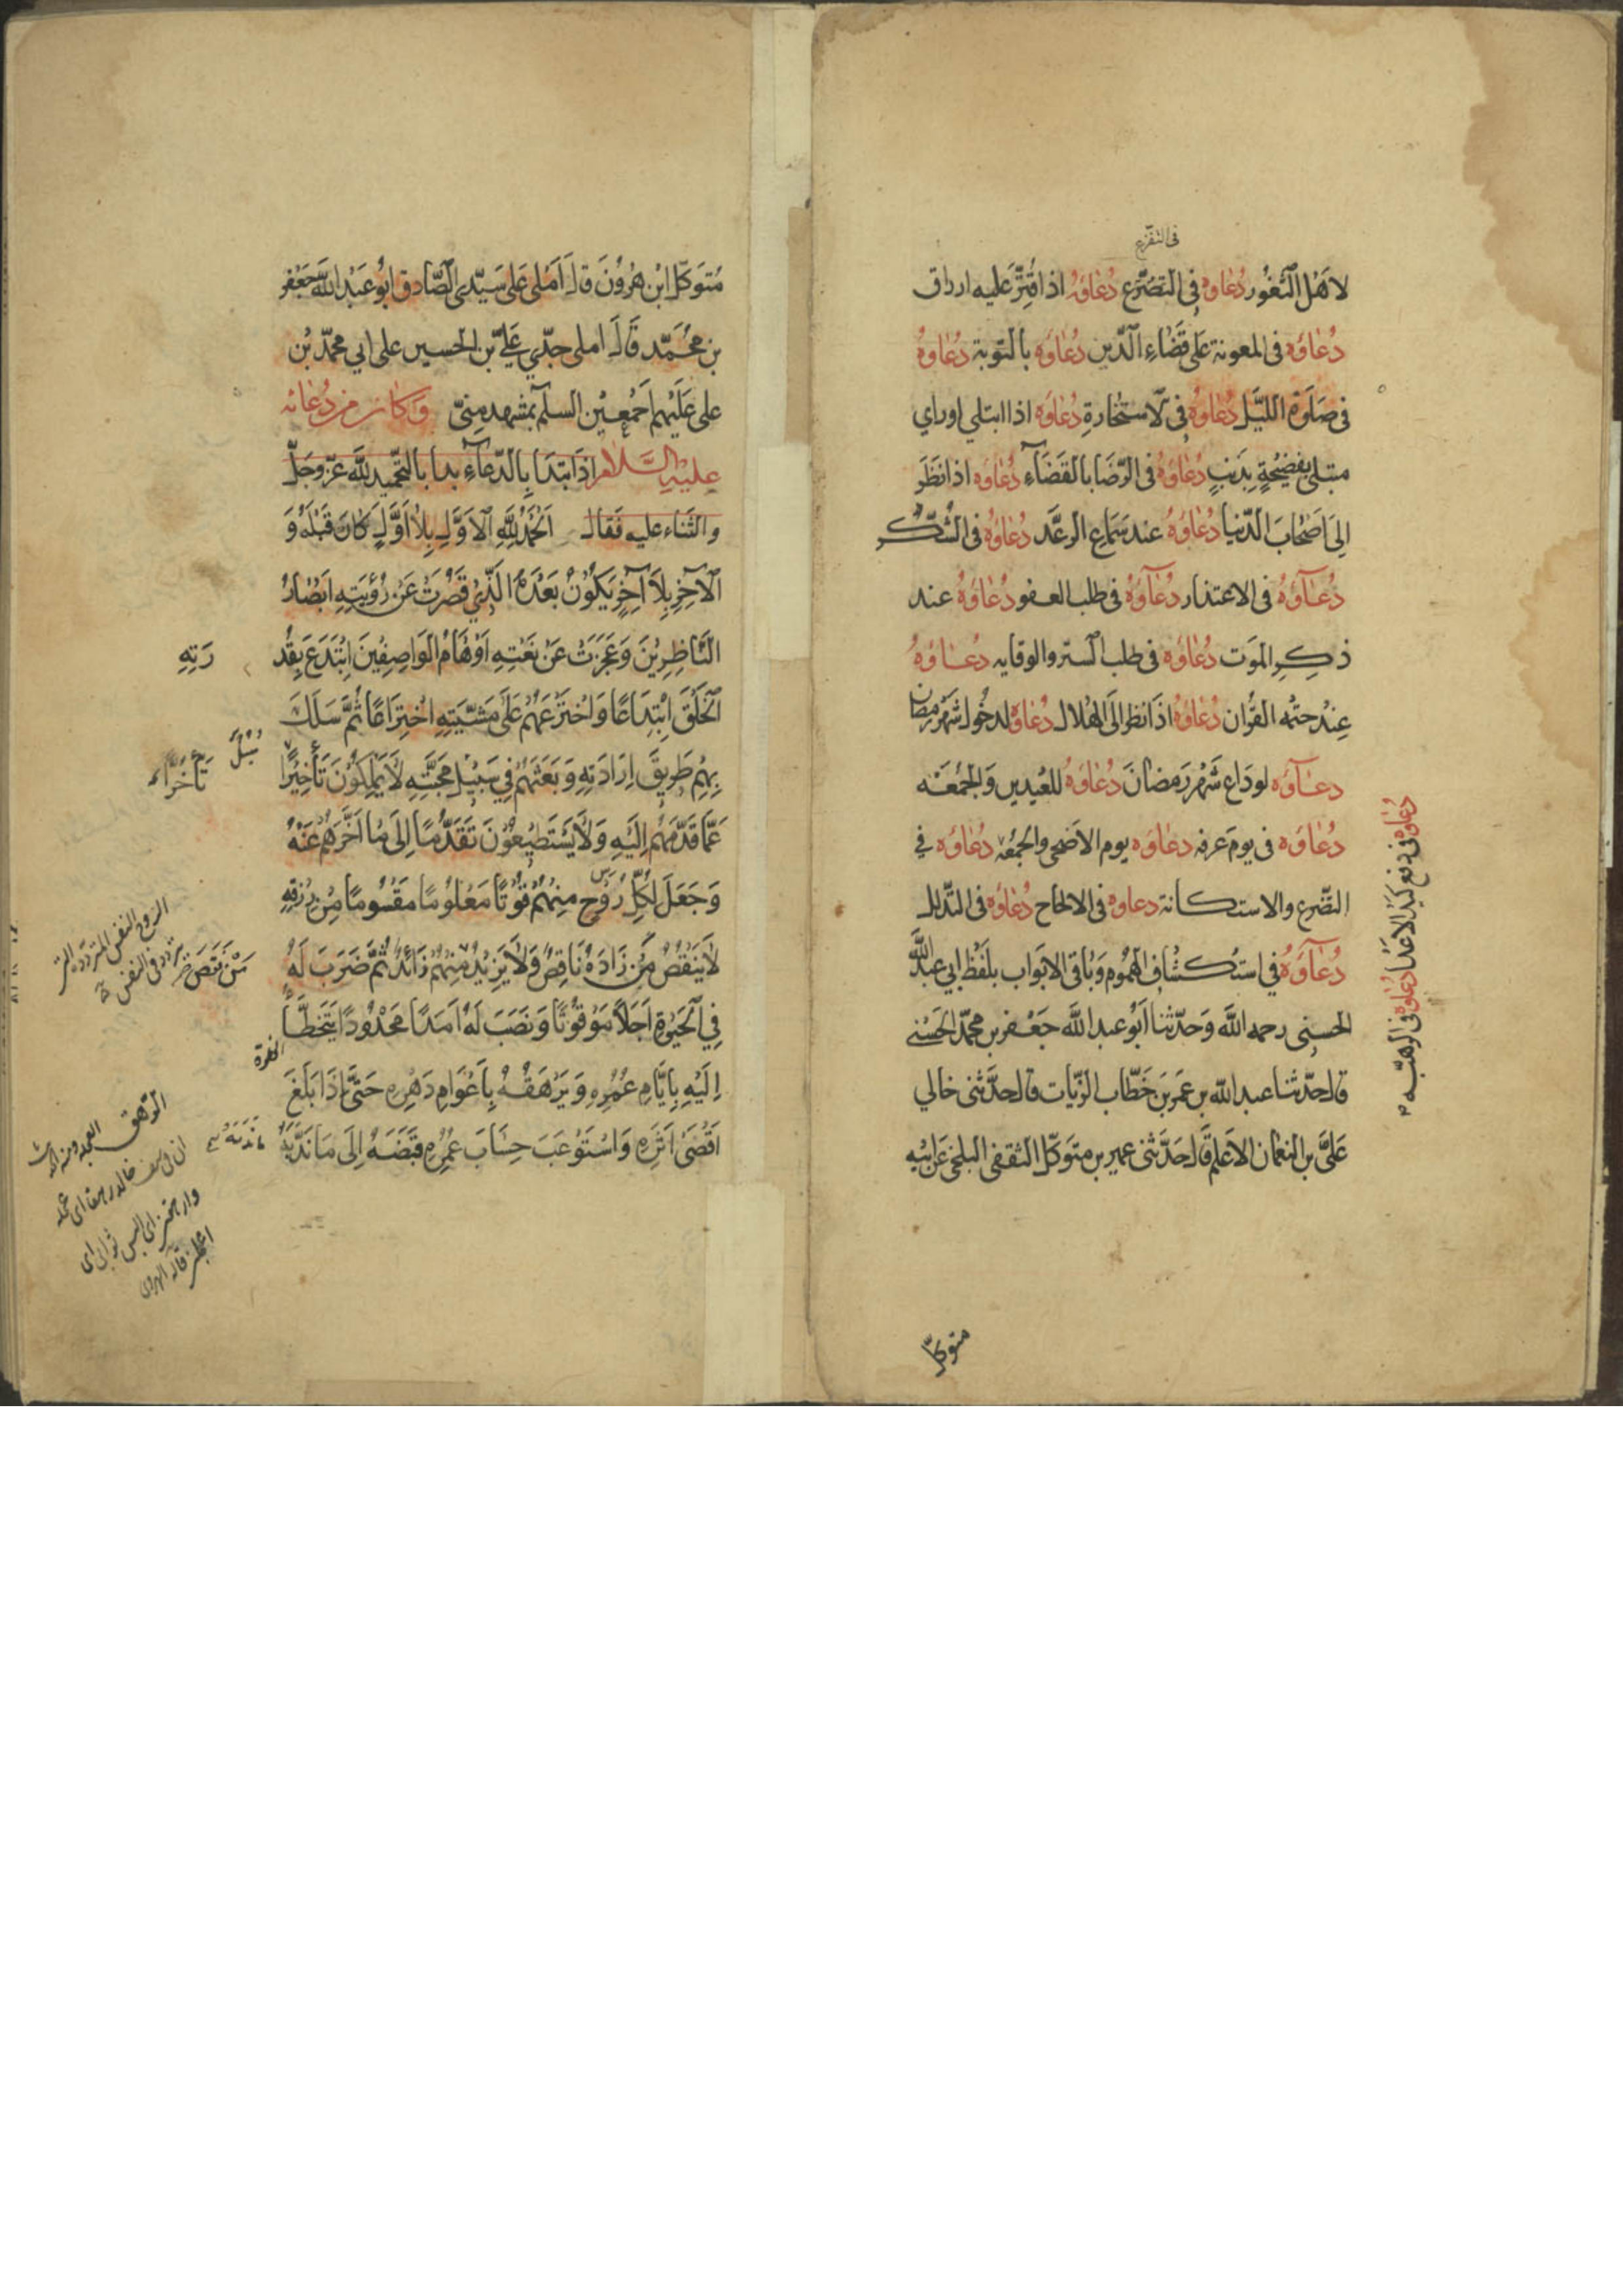 فى التفزع
لاهل الثغور دعاوه فى التضرع دعاوه اذا قتر عليه ارزاق
دعاوه فى المعونة على قضاء الدين دعاوه بالتوبة دعاوه
فى صلوة الليل دعاوه فى الاستخارة دعاوه اذا ابتلي او راي
مبتلى بفضيحة بذنب دعاوه فى الرضا بالقضاء دعاوه اذا نظر
الى اصحاب الدنيا دعاوه عند سماع الرعد دعاوه فى الشكر
دعاؤه فى الاعتذار دعاؤه فى طلب العفو دعاوه عند
ذكر الموت دعاوه فى طلب الستر والوقايه دعاوه
عند ختمه القران دعاوه اذا نظر الى الهلال دعاوه لدخول شهر رمضان
دعاؤه لوداع شهر رمضان دعاوه للعيدين والجمعه
دعاوه فى يوم عرفه دعاوه يوم الاضحى والجمعه دعاوه في
التضرع والاستكانة دعاوه فى الالحاح دعاوه فى التذلل
دعاؤه في استكشاف الهموم وباقى الابواب بلفظ ابي عبد الله
الحسنى رحمه الله وحدثنا ابو عبد الله جعفر بن محمد الحسنى
قال حدثنا عبد الله بن عمر بن خطاب الزيات قال حدثنى خالي
على بن النعمان الاعلم قال حدثنى عمير بن متوكل الثقفى البلخى عن ابيه
دعاوه فى دفع كيد الاعدا دعاوه فى الرهبه
متوكل
متوكل ابن هرون قال املى على سيدى الصادق ابو عبد الله جعفر
بن محمد قال املى جدي علي بن الحسين على ابي محمد بن
على عليهم اجمعين السلم بمشهد منى وكان من دعائه
عليه السلام اذا ابتدا بالدعاء بدا بالتحميد لله عز وجل
والثناء عليه فقال الحمد لله الاول بلا اول كان قبله و
الآخر بلا آخر يكون بعده الذي قصرت عن رؤيته ابصار
الناظرين وعجزت عن نعته اوهام الواصفين ابتدع بقد
رته
الخلق ابتداعا واخترعهم على مشيته اختراعا ثم سلك
بهم طريق ارادته وبعثهم في سبيل محبته لا يملكون تأخيرا
سبل
تأخرا
عما قدمهم اليه ولا يستطيعون تقدما الى ما اخرهم عنه
وجعل لكل روح منهم قوتا معلوما مقسوما من رزقه
لا ينقص من زاده ناقص ولا يزيد منهم زائد ثم ضرب له
من نقص
في الحيوة اجلا موقوتا ونصب له امدا محدودا يتخطأ
اليه بايام عمره ويرهقه باعوام دهره حتى اذا بلغ
اقصى اثره واستوعب حساب عمره قبضه الى ما ندبه
الروح النفس
الرهق